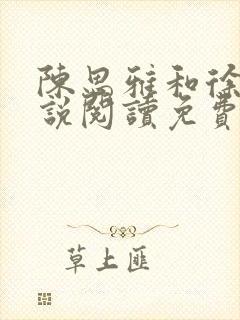 陳思雅和徐
說閱讀免費
草上匪